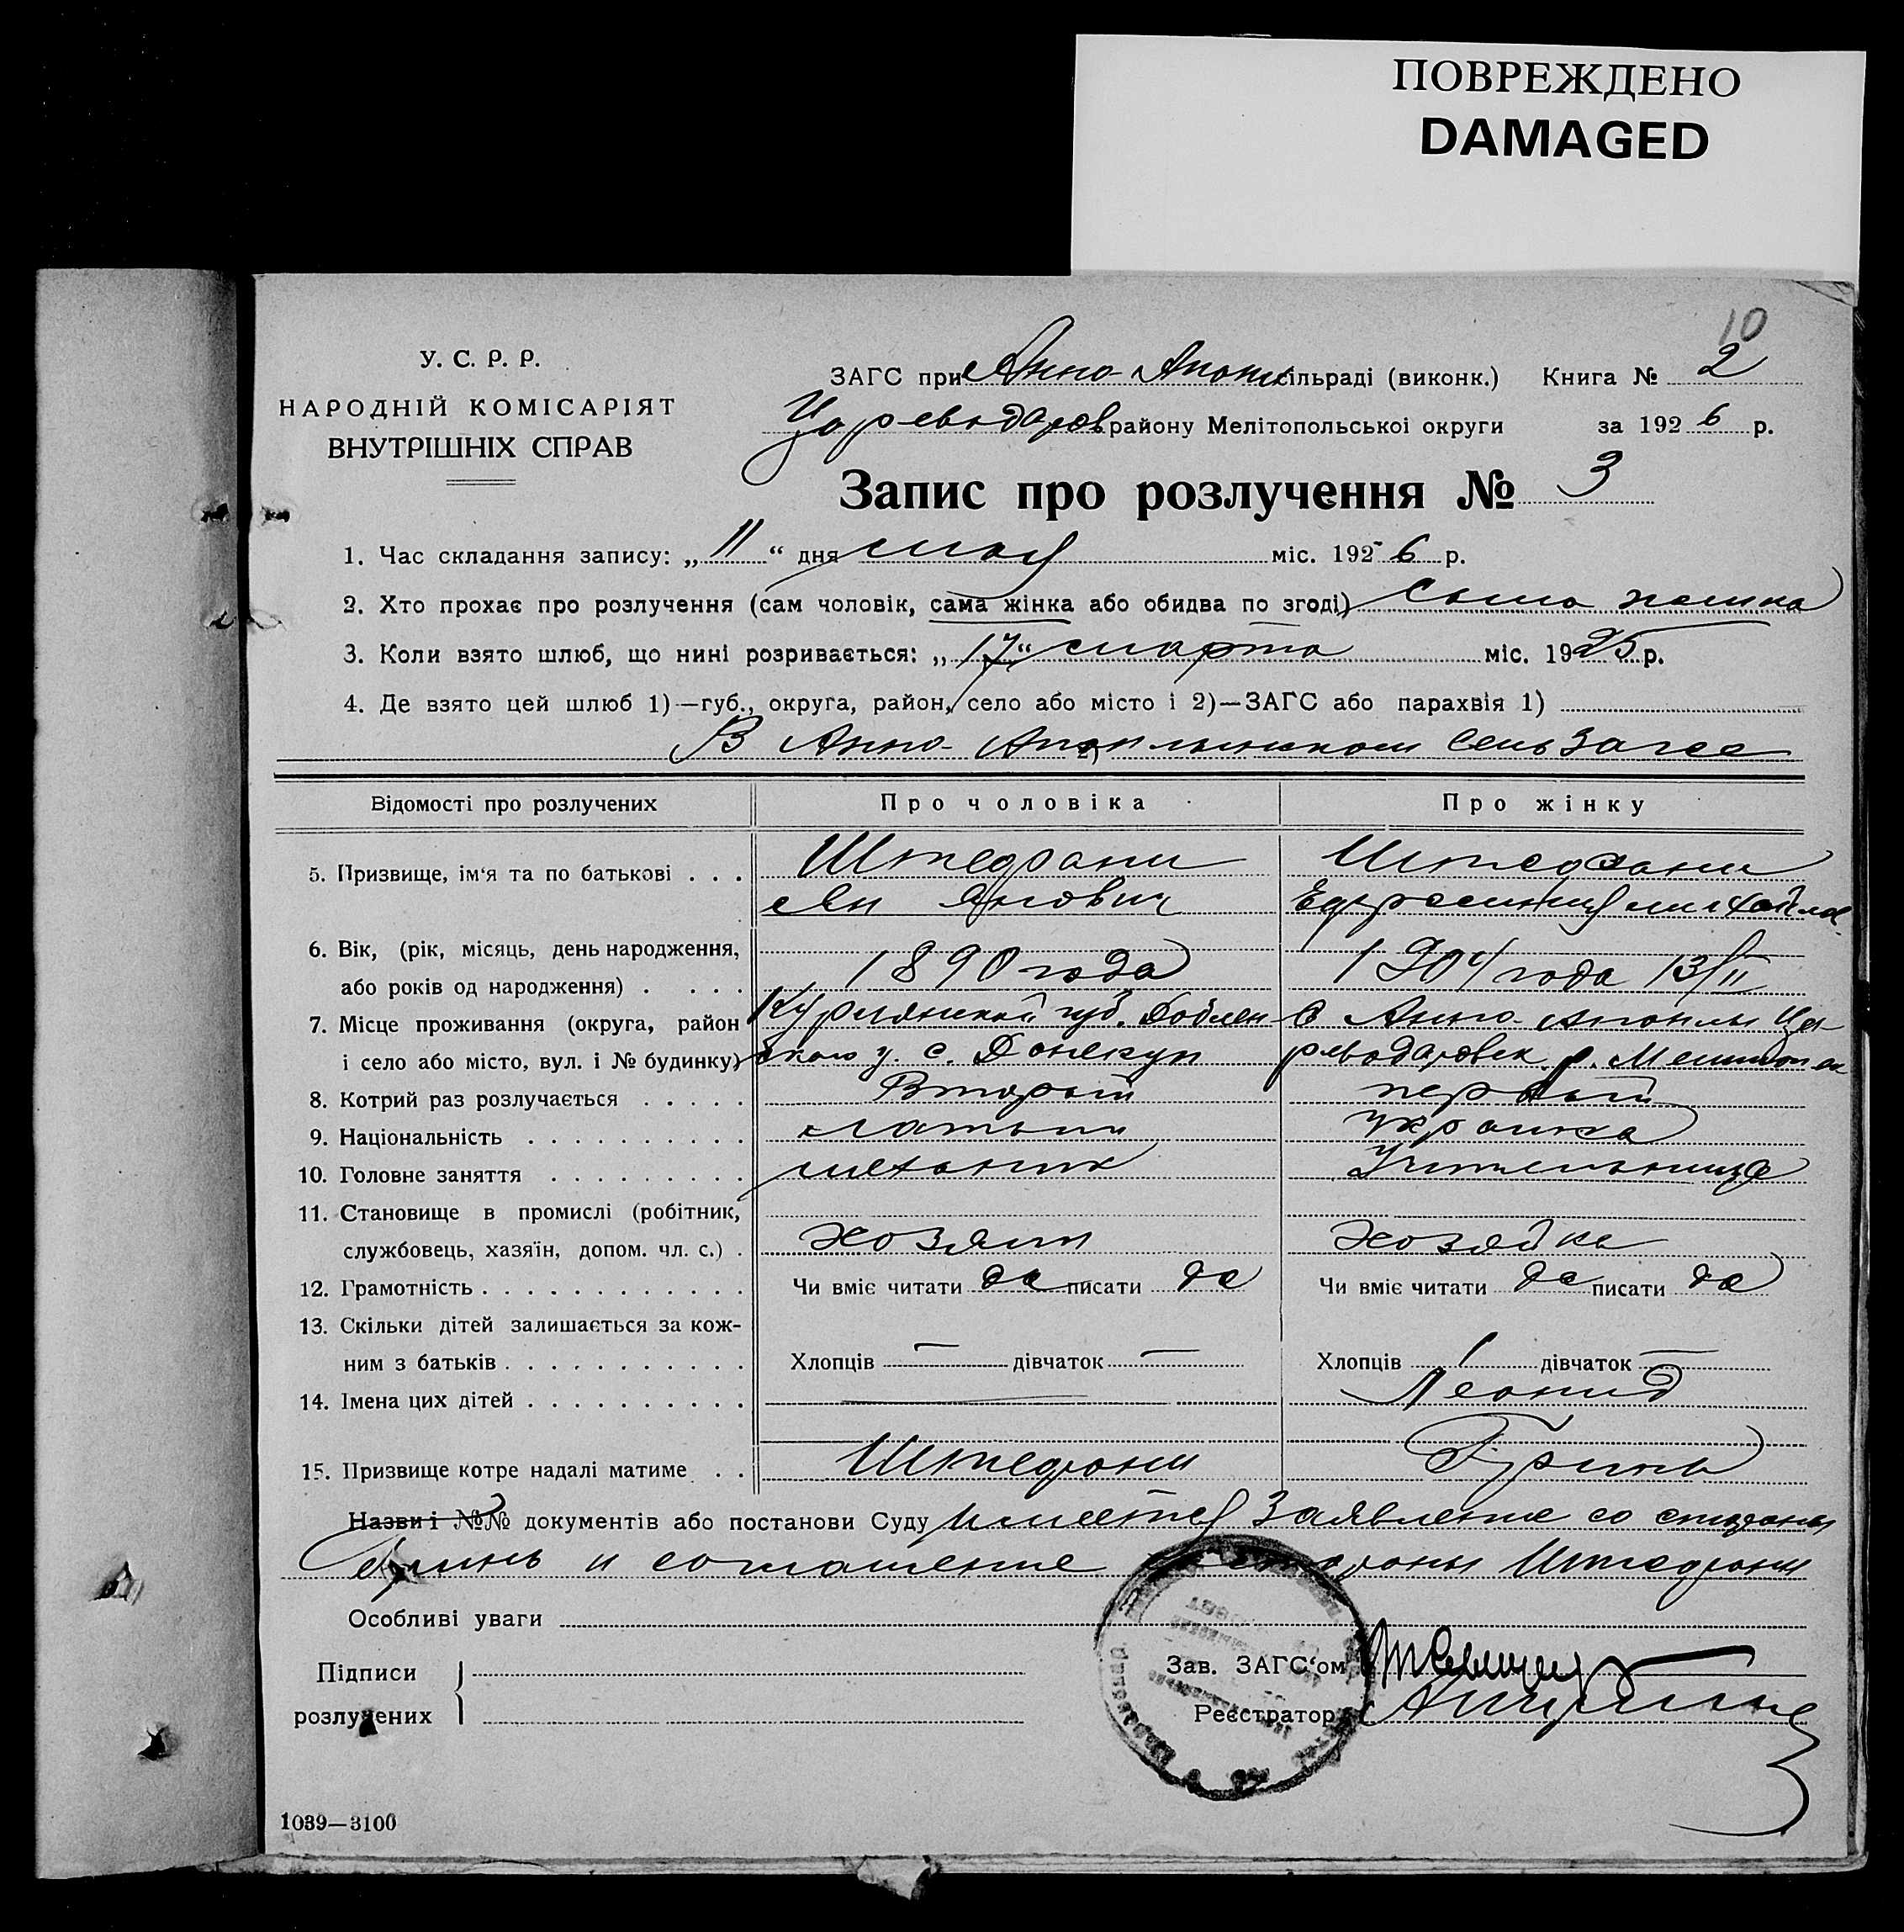 ПОВРЕЖДЕНО
DAMAGED
10
У. С. Р. Р.
НАРОДНІЙ КОМІСАРІЯТ
ВНУТРІШНІХ СПРАВ
ЗАГС при Анно-Апольс сільраді (виконк.) Книга № 2
Цареводаров району Мелітопольської округи за 1926 р.
Запис про розлучення № 3
1. Час складання запису: „ 11 “ дня мая міс. 1926 р.
2. Хто прохає про розлучення (сам чоловік, сама жінка або обидва по згоді) сама жинка
3. Коли взято шлюб, що нині розривається: „ 17 “ марта міс. 1925 р.
4. Де взято цей шлюб 1)—губ., округа, район, село або місто і 2)—ЗАГС або парахвія 1)
В Анно- 2) сельзагсе
Відомості про розлучених Про чоловіка Про жінку
5. Призвище, ім‘я та по батькові . . . Штефани Штефани
Ян Янович Ефросиния Михайлов
6. Вік, (рік, місяць, день народження,
або років од народження) . . . . 1890 года 1904 года 13/II
7. Місце проживання (округа, район Курлянской губ. Доблен С Анно-Аполь Ца-
і село або місто, вул. і № будинку) ского у. с. реводаровск. р. Мелитоп ок
8. Котрий раз розлучається . . . . . Вторый первый
9. Національність . . . . . . . . . . латыш украинка
10. Головне заняття . . . . . . . . . механик Учительница
11. Становище в промислі (робітник,
службовець, хазяїн, допом. чл. с.) . хозяин Хозяйка
12. Грамотність . . . . . . . . . . . . Чи вміє читати да писати да Чи вміє читати да писати да
13. Скільки дітей залишається за кож-
ним з батьків . . . . . . . . . . . Хлопців — дівчаток — Хлопців 1 дівчаток —
14. Імена цих дітей . . . . . . . . . . — Леонид
15. Призвище котре надалі матиме . . Штефани Гринь
Назви і №№ документів або постанови Суду Имеется Заявление со стороны
Гринь и соглашение стороны Штефани
Особливі уваги
Підписи
розлучених
Зав. ЗАГС‘ом
Реєстратор
1039—3100